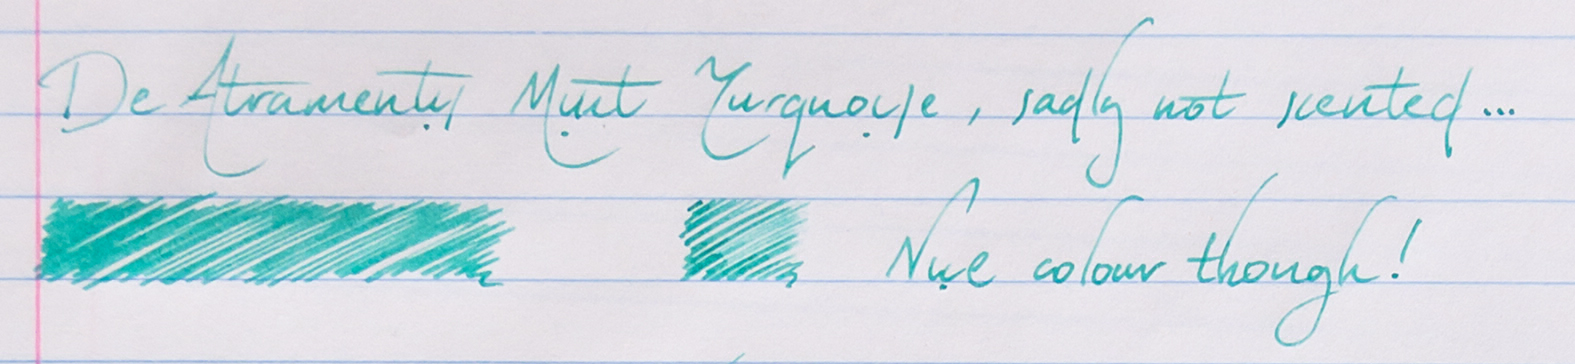 De Atramentis Mint Turquoise, sadly not scented...
Nice colour though!